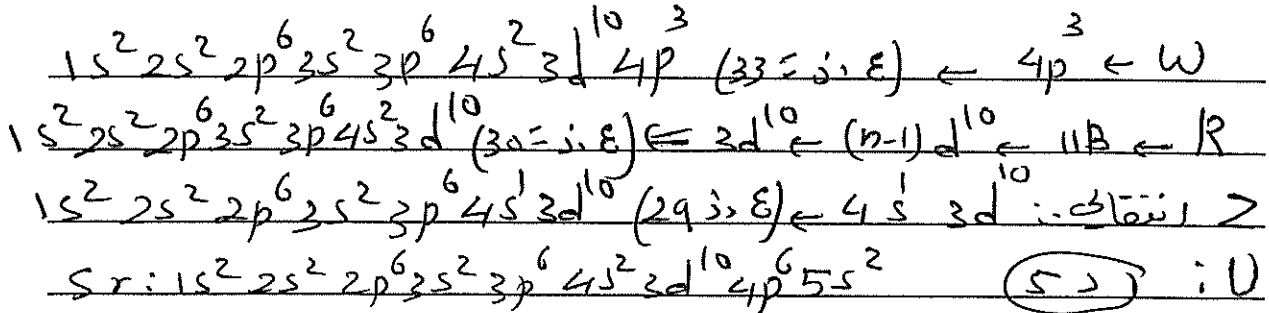 1s² 2s² 2p⁶ 3s² 3p⁶ 4s² 3d¹⁰ 4p³ (33 = ع.ذ) ← 4p³ ← W
1s² 2s² 2p⁶ 3s² 3p⁶ 4s² 3d¹⁰ (30 = ع.ذ) ⇐ 3d¹⁰ ← (n-1)d¹⁰ ← IIB ← R
1s² 2s² 2p⁶ 3s² 3p⁶ 4s¹ 3d¹⁰ (29 ع.ذ) ← 4s¹ 3d¹⁰ :
Sr: 1s² 2s² 2p⁶ 3s² 3p⁶ 4s² 3d¹⁰ 4p⁶ 5s² : U